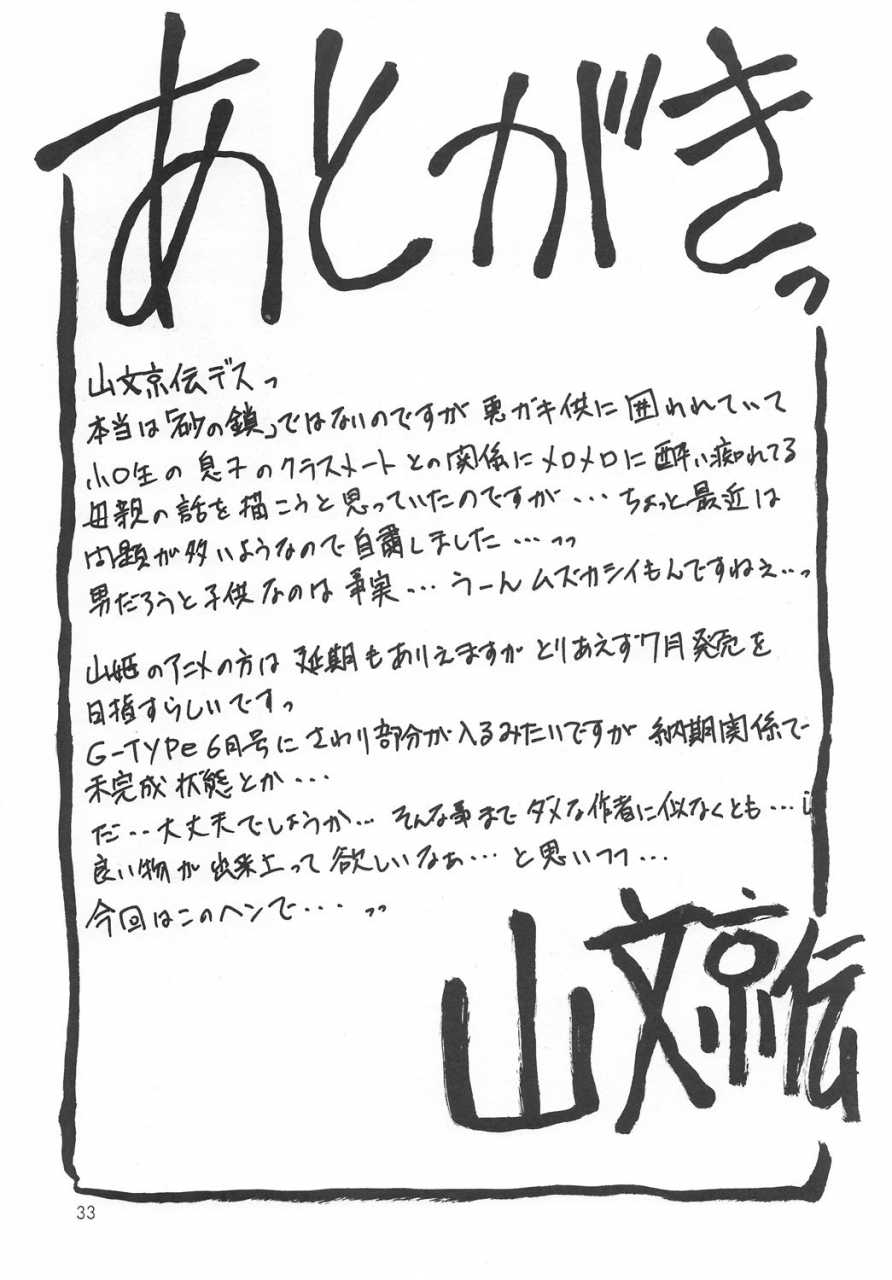 あとがきっ
山文京伝デスっ
本当は「砂の鎖」ではないのですが 悪ガキ供に 囲われていて
小○生の 息子のクラスメートとの関係にメロメロに酔い痴れてる
母親の話を描こうと思っていたのですが・・・ ちょっと最近は
問題が多いようなので自粛しました・・・っっ
男だろうと子供なのは事実・・・ うーん ムズカシイもんですねぇ・・っ
山姫のアニメの方は 延期もありえますが とりあえず7月発売を
目指すらしいですっ
G-TYPe 6月号に さわり部分が入るみたいですが 納期関係で
未完成状態とか・・・
だ・・大丈夫でしょうか・・・ そんな事まで ダメな作者に似なくとも・・・
良い物が 出来上って 欲しいなぁ・・・ と思いつつ・・・
今回はこのヘンで・・・ っっ
山文京伝
33